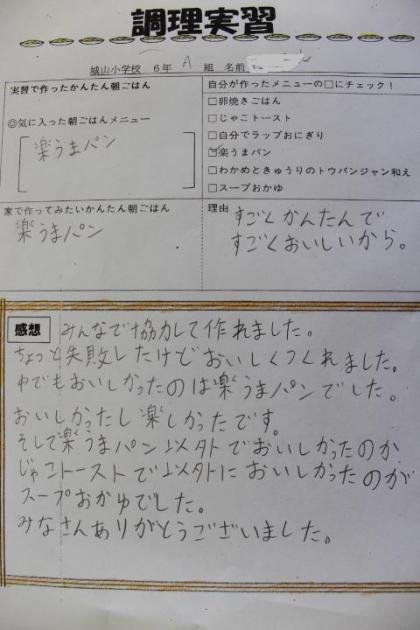 調理実習
城山小学校 6年 A 組 名前
実習で作ったかんたん朝ごはん
◎気に入った朝ごはんメニュー
楽うまパン
自分が作ったメニューの□にチェック！
□卵焼きごはん
□じゃこトースト
□自分でラップおにぎり
☑楽うまパン
□わかめときゅうりのトウバンジャン和え
□スープおかゆ
家で作ってみたいかんたん朝ごはん
楽うまパン
理由
すごくかんたんで
すごくおいしいから。
感想
みんなで協力して作れました。
ちょっと失敗したけどおいしくつくれました。
中でもおいしかったのは楽うまパンでした。
おいしかったし楽しかったです。
そして楽うまパン以外でおいしかったのが
じゃこトーストで以外においしかったのが
スープおかゆでした。
みなさんありがとうございました。